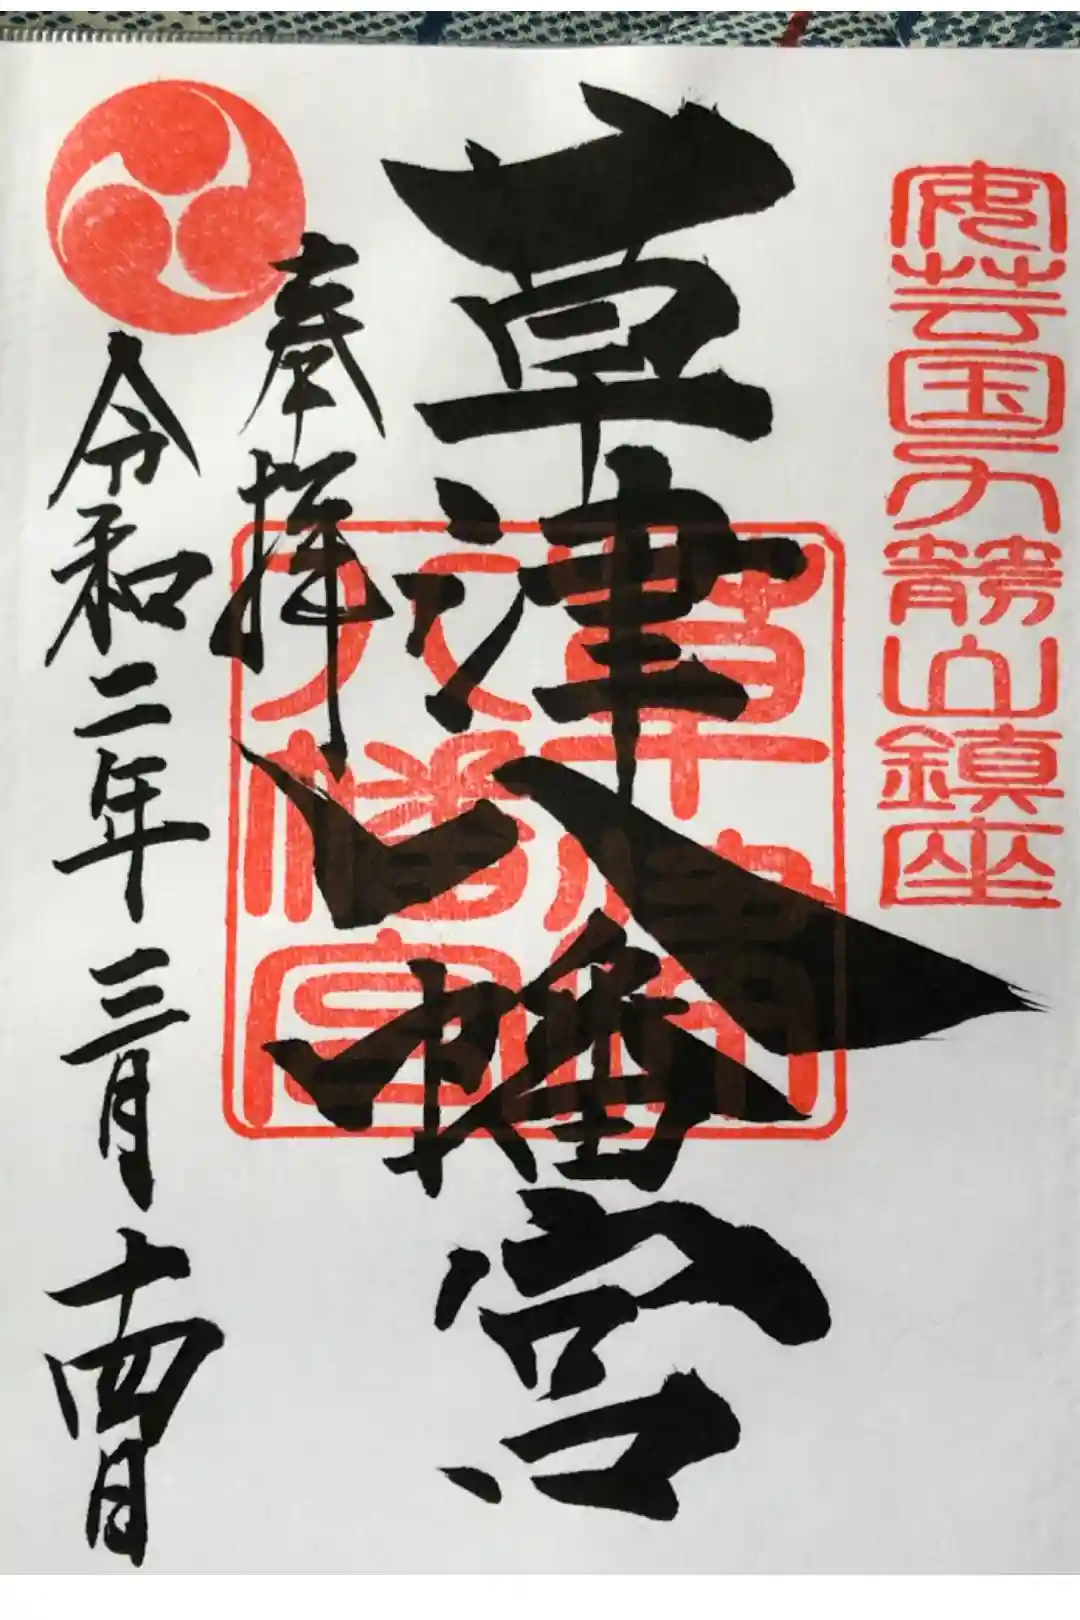 安芸国力箭山鎮座
草津八幡宮
草津
八幡宮
奉拝
令和二年三月十四日